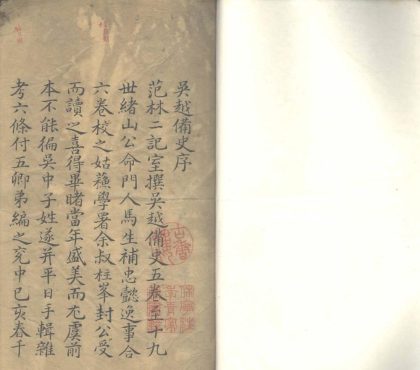 吳越備史序
范林二記室撰吳越備史五卷至十九
世緒山公命門人馬生補忠懿逸事合
六卷校之姑蘇學署余叔柱峯封公受
而讀之喜得畢睹當年盛美而尤虞前
本不能徧吳中子姓遂并平日手輯雜
考六條付五卿弟編之兖中已亥春千